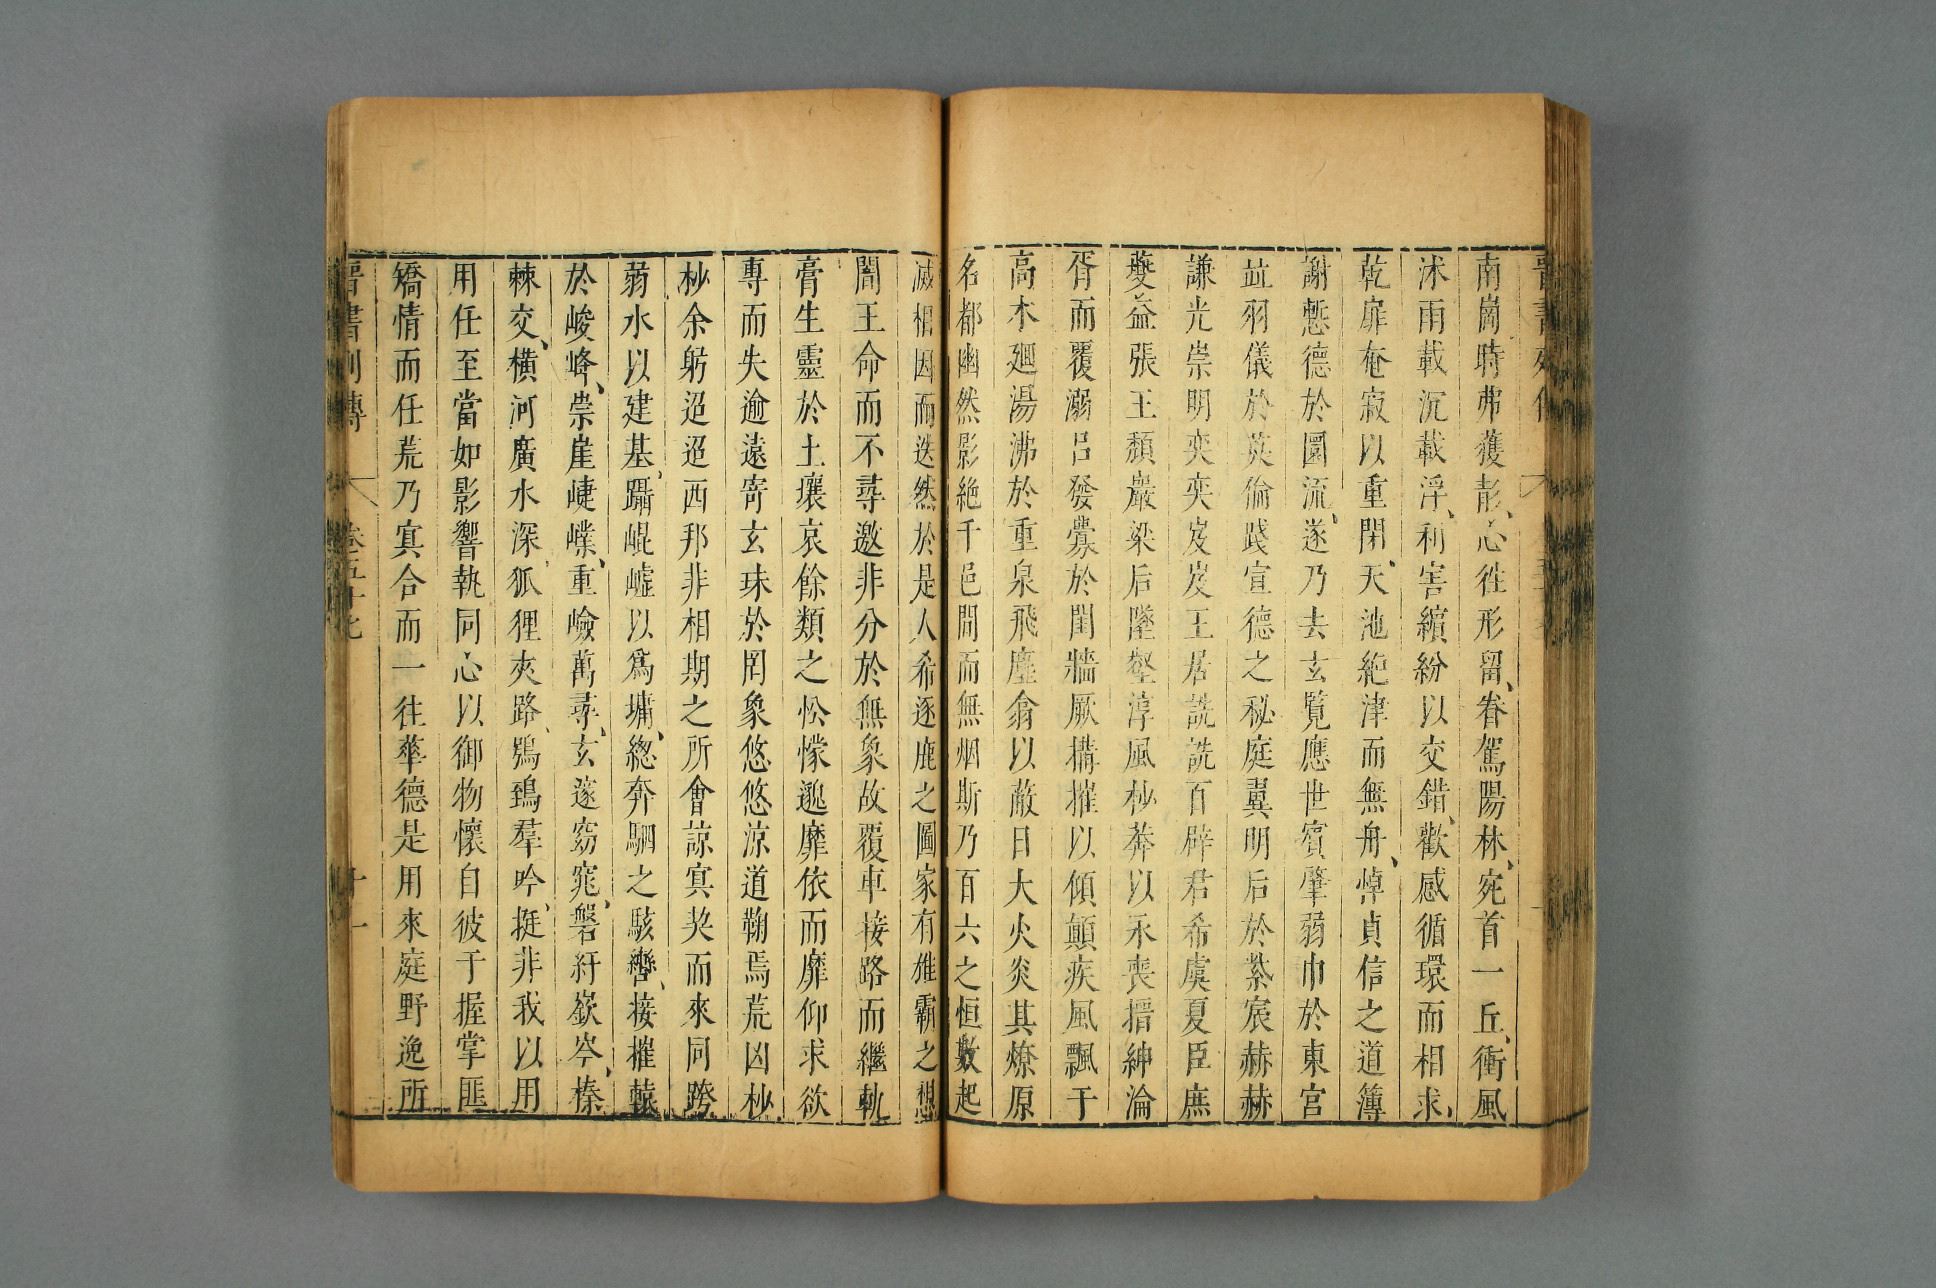 南崗時弗獲彰、心徃形留、眷駕陽林、宛首一丘、衝風
沐雨載沉載浮、利害繽紛以交錯、歡感循環而相求、
乾扉奄寂以重閉、天池絶津而無舟、悼貞信之道簿
謝慙德於圜流、遂乃去玄覧應世賓肇弱巾於東宮
並羽儀於英倫踐宣德之秘庭翼明后於紫宸赫赫
謙光崇明奕奕岌岌王居詵詵百辟君希虞夏臣庶
夔益張王頹巖梁后墜壑淳風杪莽以永喪搢紳淪
胥而覆溺呂發釁於閨牆厥構摧以傾顛疾風飄于
高木廻湯沸於重泉飛塵翕以蔽日大火炎其燎原
名都幽然影絶千邑闃而無烟斯乃百六之恒數起
滅相因而迭然於是人希逐鹿之圖家有雄霸之想
闇王命而不尋邀非分於無象故覆車接路而繼軌
膏生靈於土壤哀餘類之忪懞邈靡依而靡仰求欲
專而失逾遠寄玄珠於罔象悠悠涼道鞠焉荒凶杪
杪余躬迢迢西邦非相期之所會諒寘契而來同跨
弱水以建基、躡崐墟以爲墉、總奔駟之駭轡、接摧轅
於峻峰、崇崖崨嶫、重嶮萬尋、玄邃窈窕、磐紆嶔岑、榛
棘交、橫河廣水深、狐狸夾路、鴞鵄羣吟、挺非我以用
用任至當如影響執同心以御物懷自彼于握掌匪
矯情而任荒乃寘合而一往華德是用來庭野逸所
晉書列傳 卷五十七 十一